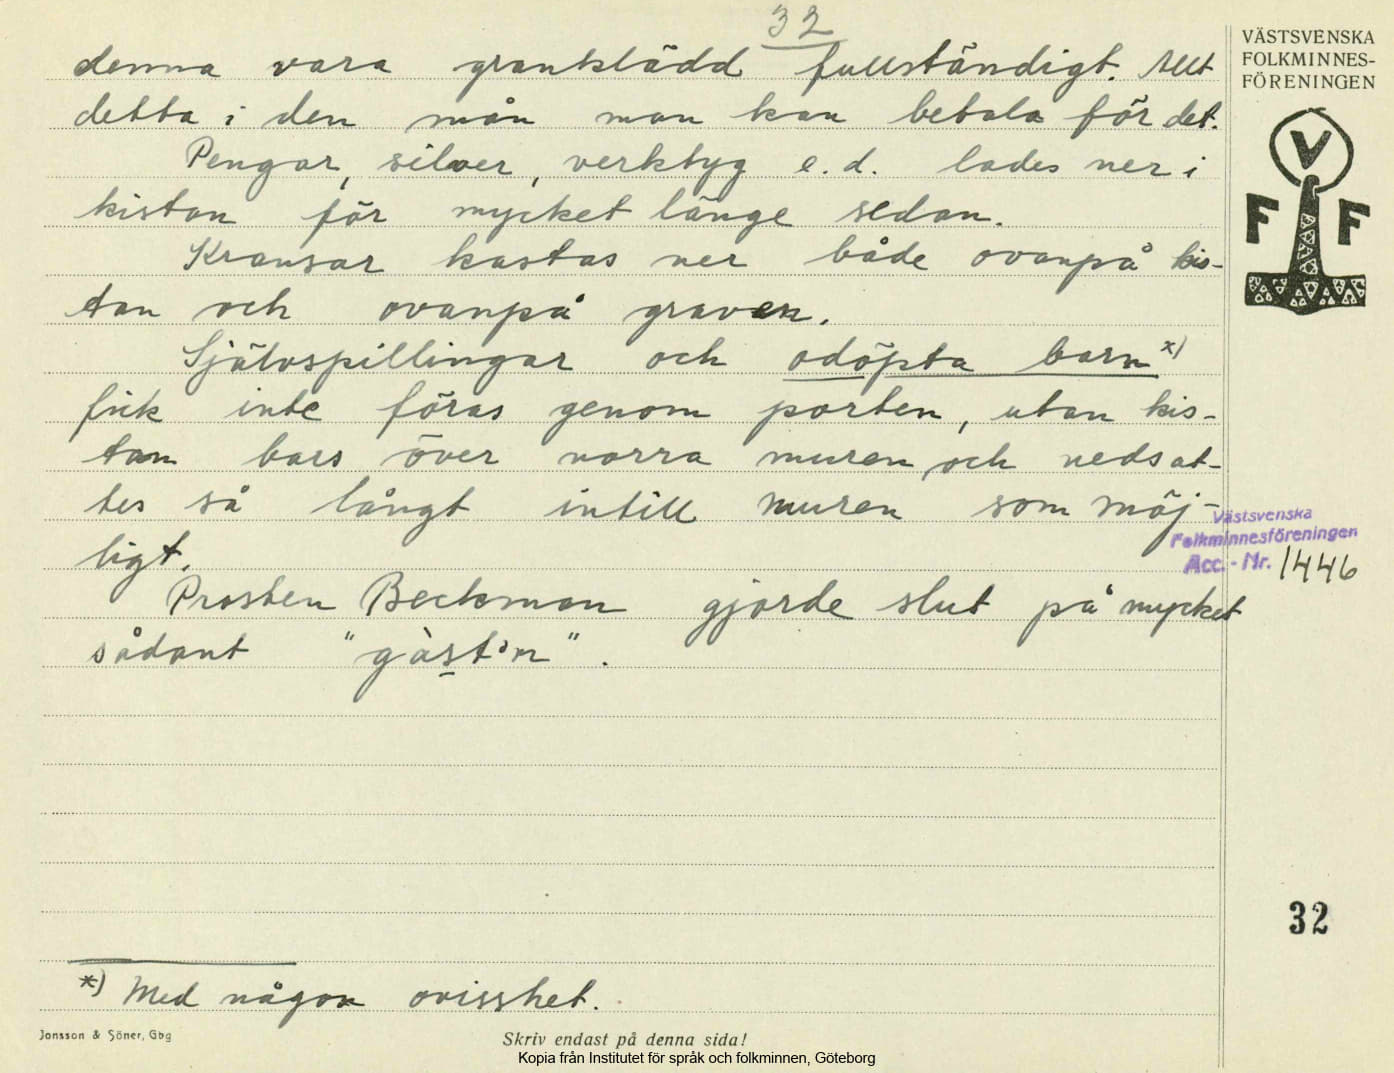 32
denna vara grantklädd fullständigt. Allt
detta i den mån man kan betala för det.
Pengar, silver, verktyg e.d. lades ner i
kistan för mycket länge sedan.
Kransar kastas ner både ovanpå kis-
tan och ovanpå graven.
Självspillingar och odöpta barn *)
fick inte föras genom porten, utan kis-
tan bars över norra muren och nedsat-
tes så långt intill muren som möj-
ligt.
Prosten Beckman gjorde slut på mycket
sådant "gàst'n".
*) Med någon ovisshet.
Jonsson & Söner, Gbg
Skriv endast på denna sida!
Kopia från Institutet för språk och folkminnen, Göteborg
VÄSTSVENSKA
FOLKMINNES-
FÖRENINGEN
V
F F
Västsvenska
Folkminnesföreningen
Acc. - Nr. 1446
32